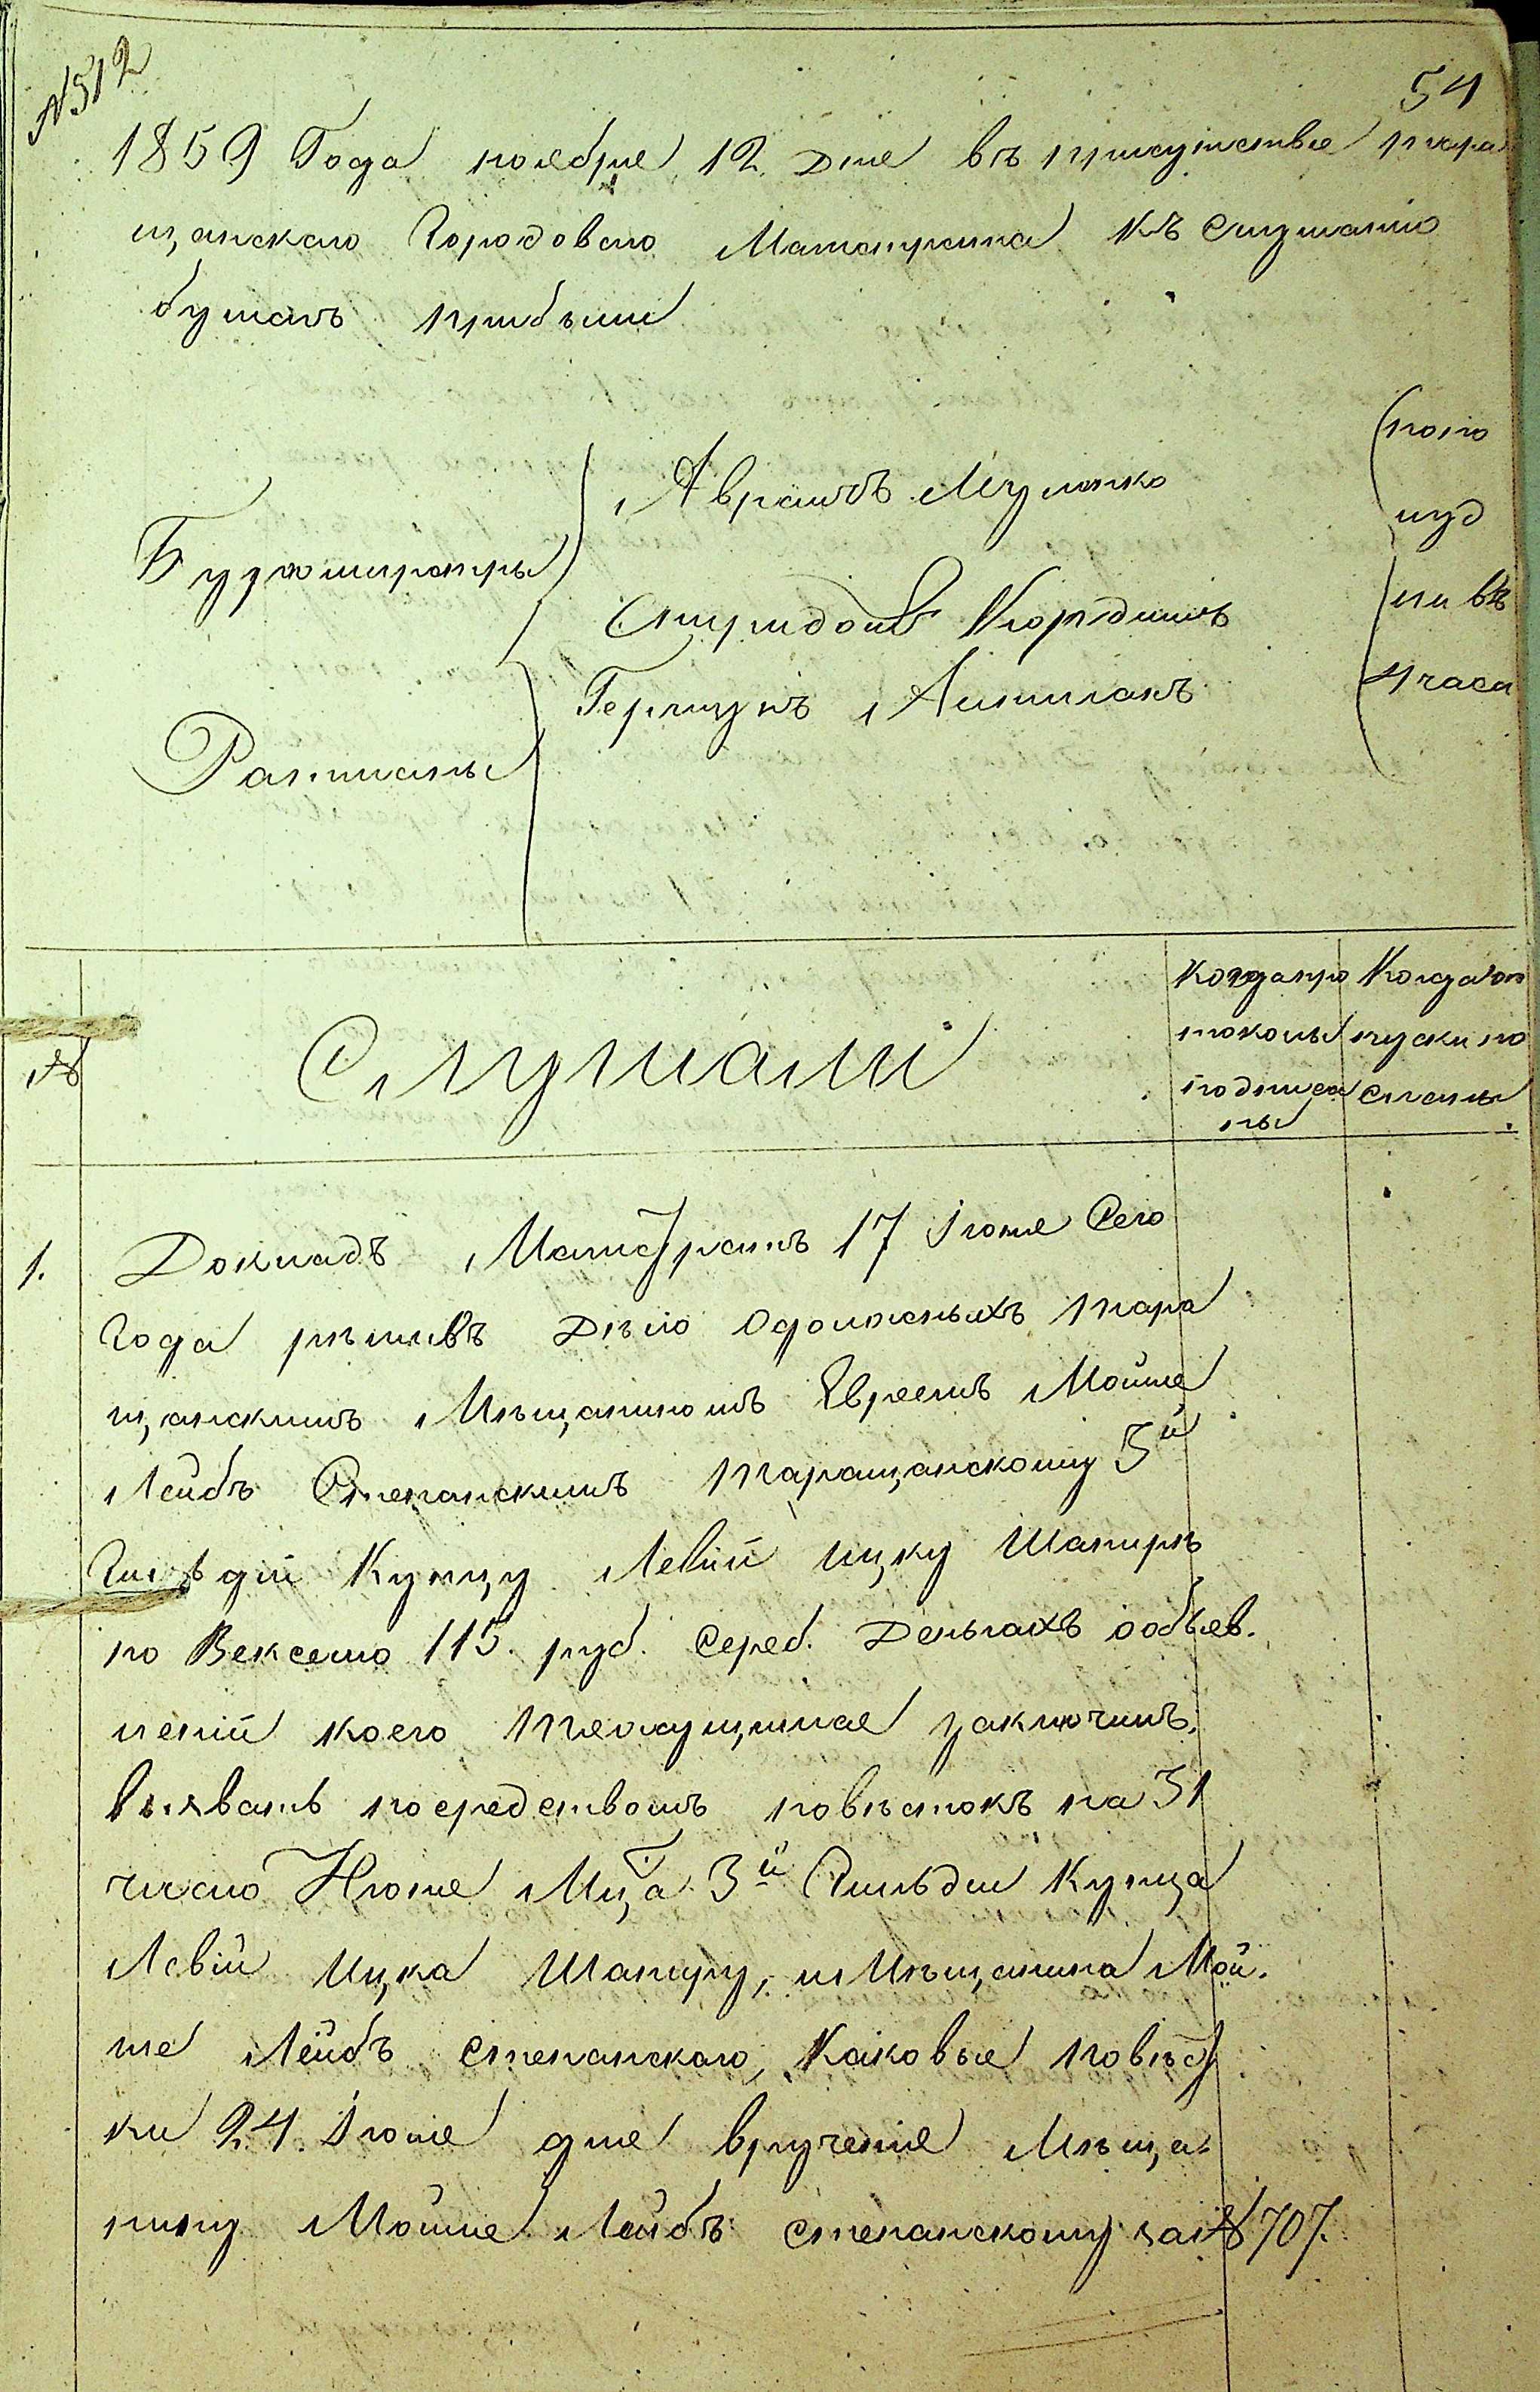 № 512
54
1859 Года ноебрие 12 дне въ присутствіе тара
щанскаго Городоваго Магистрата къ слушанію
бумагъ прибыли
Бургомистры
Аврамъ
Спиридонъ
Ратманы
Гершунъ
(по по
луд
ни въ
4 часа
№
Слушали
Когда про
токолы
подписа
ны
Когда от
пуски по
сланы
1.
Докладъ Магистратъ 17 Іюне Сего
Года рѣшивъ дѣло одолженыхъ тара
щанскимъ Мѣщаниномъ Евреемъ Мойше
Лейбъ Степанскимъ таращанскому 3й
Гильдіи Купцу Левій Ицку Шапирѣ
по Векселю 115. руб. Сереб. Деньгахъ
неній коего заключилъ.
Вызвать посредствомъ повѣстокъ на 31
число Июне Мца 3й Гильдіи Купца
Левій Ицка Шапиру, и Мѣщанина Мой.
ше Лейбъ степанскаго, Каковые повѣст
ки 24. Іюне дне врученіе Мѣща.
нину Мойше Лейбъ степанскому за № 707.